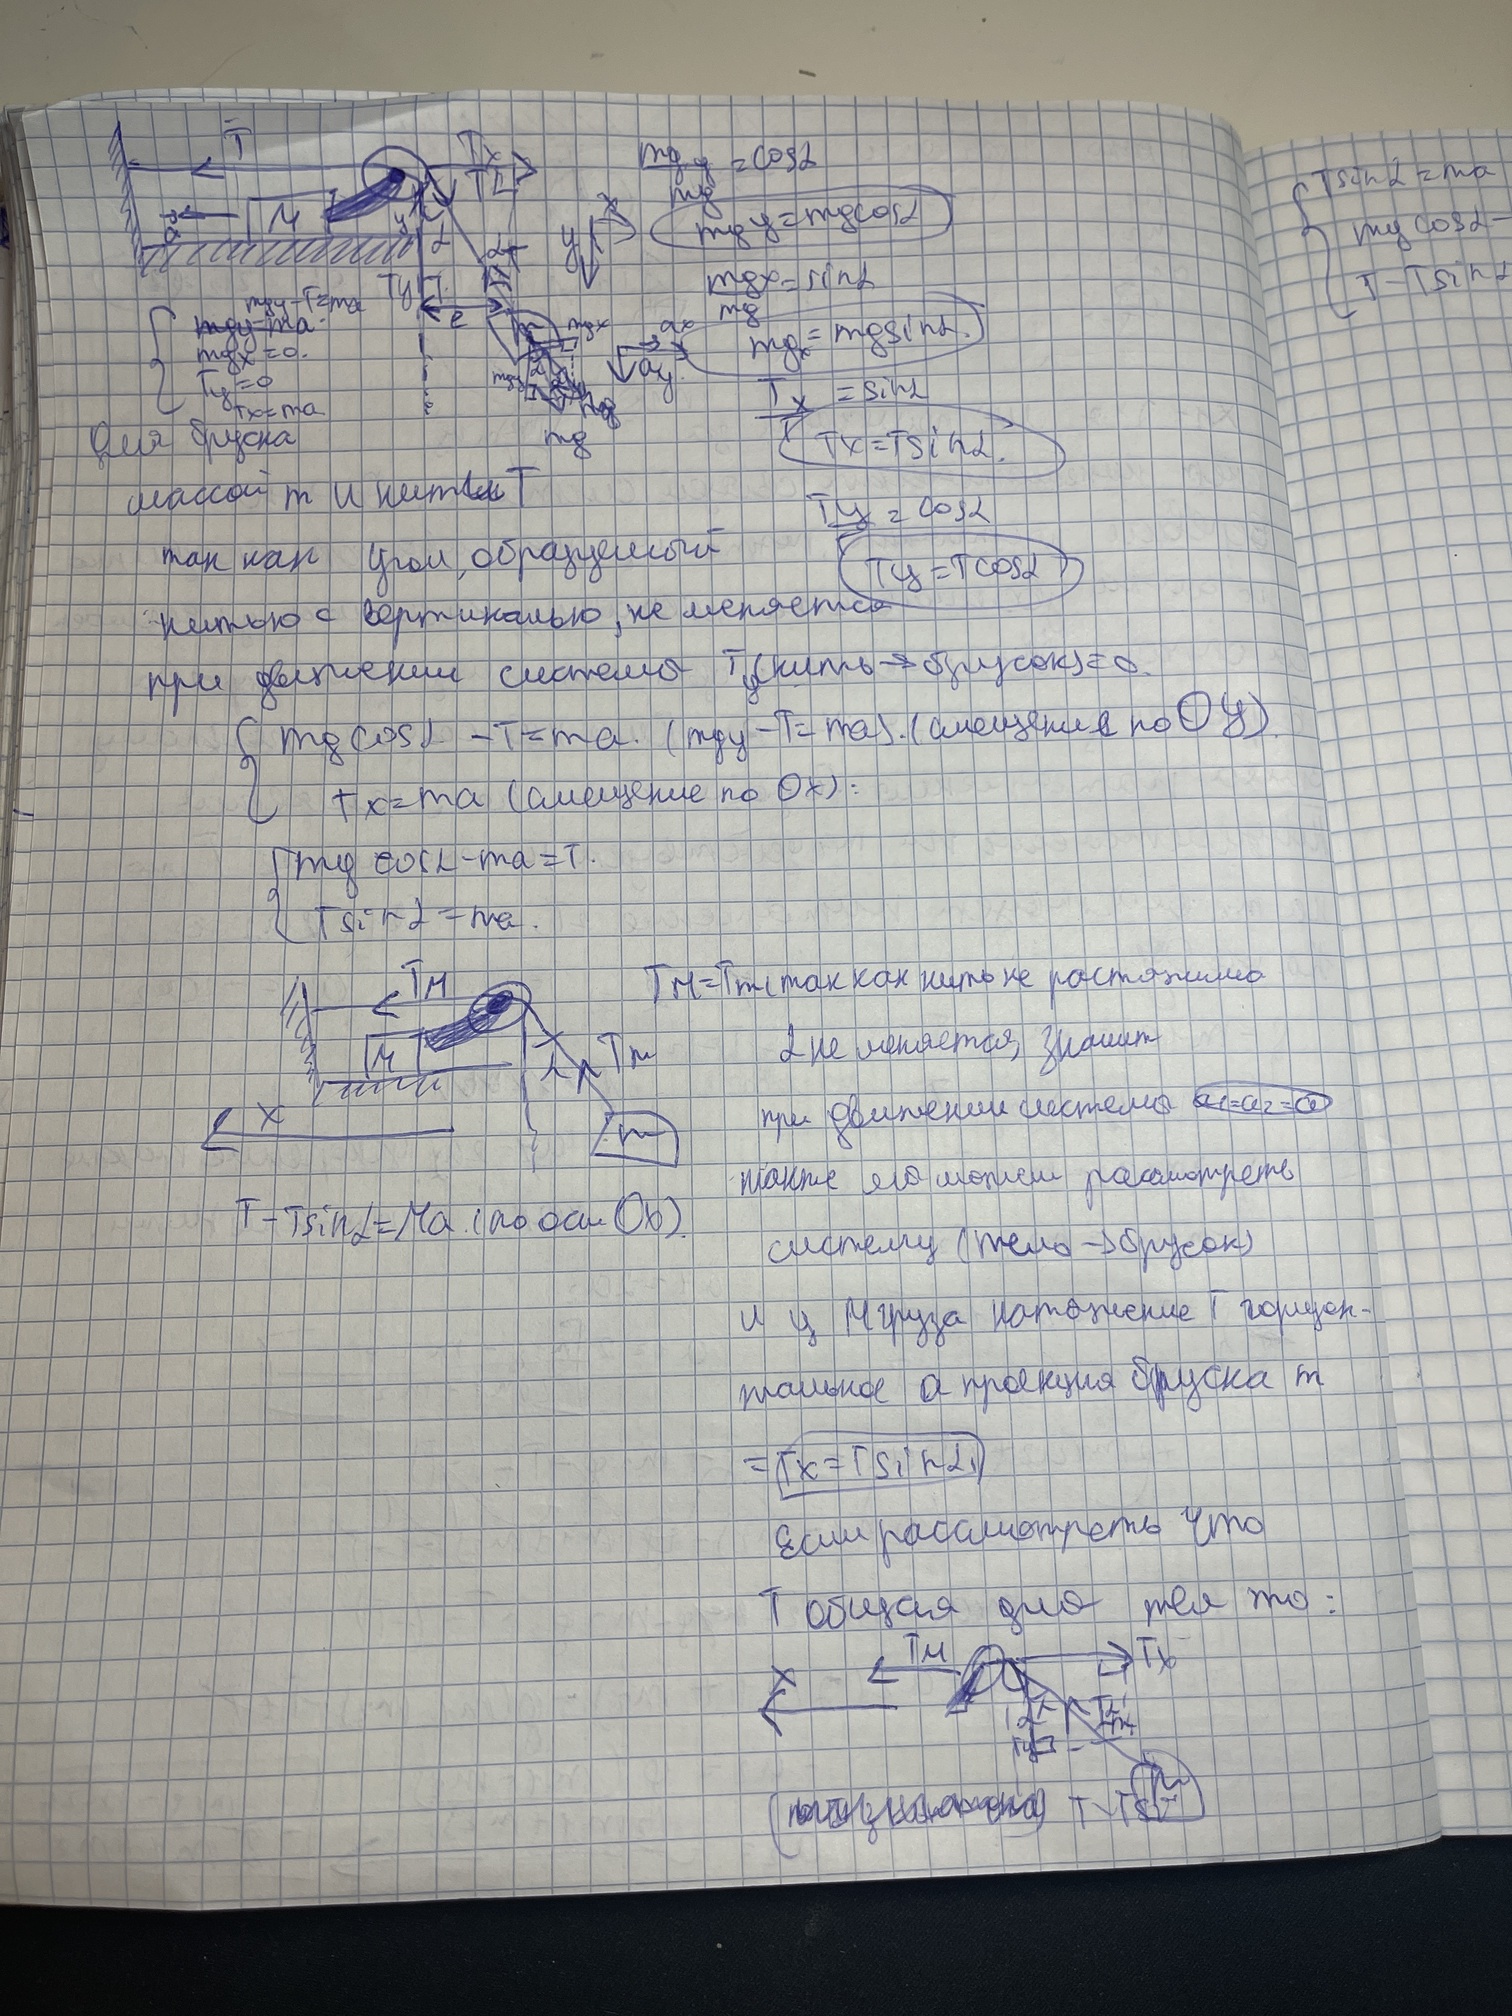 T̄
Tx
M
mgy/mg = cosα
mgy = mgcosα
mgx/mg = sinα
mgx = mgsinα.
Tx/T = sinα
Tx = Tsinα.
Ty/T = cosα
Ty = Tcosα
Tsinα = ma
mgcosα -
T - Tsinα
mgy - T = ma
mgy = ma
mgx = 0.
Ty = 0
Tx = ma
mg
Для бруска
массой m и нитки T
так как угол, образуемый
нитью с вертикалью, не меняется
при движении система Ty(нить→брусок)=0.
mgcosα - T = ma. (mgy - T = ma). (смещение по OY)
Tx = ma (смещение по Ox):
mg cosα - ma = T.
Tsinα = ma.
TM
M
Tm
m
X
T - Tsinα = Ma. (по оси Ox).
TM = Tm так как нить не растяжима
α не меняется, значит
при движении система a1=a2=a
также мо можем рассмотреть
систему (тело→брусок)
и у M груза натяжение T горизон-
тальное а проекция бруска m
= Tx = Tsinα
Если рассмотреть что
T общая для тел то:
TM
Tx
X
m
T - Tsi